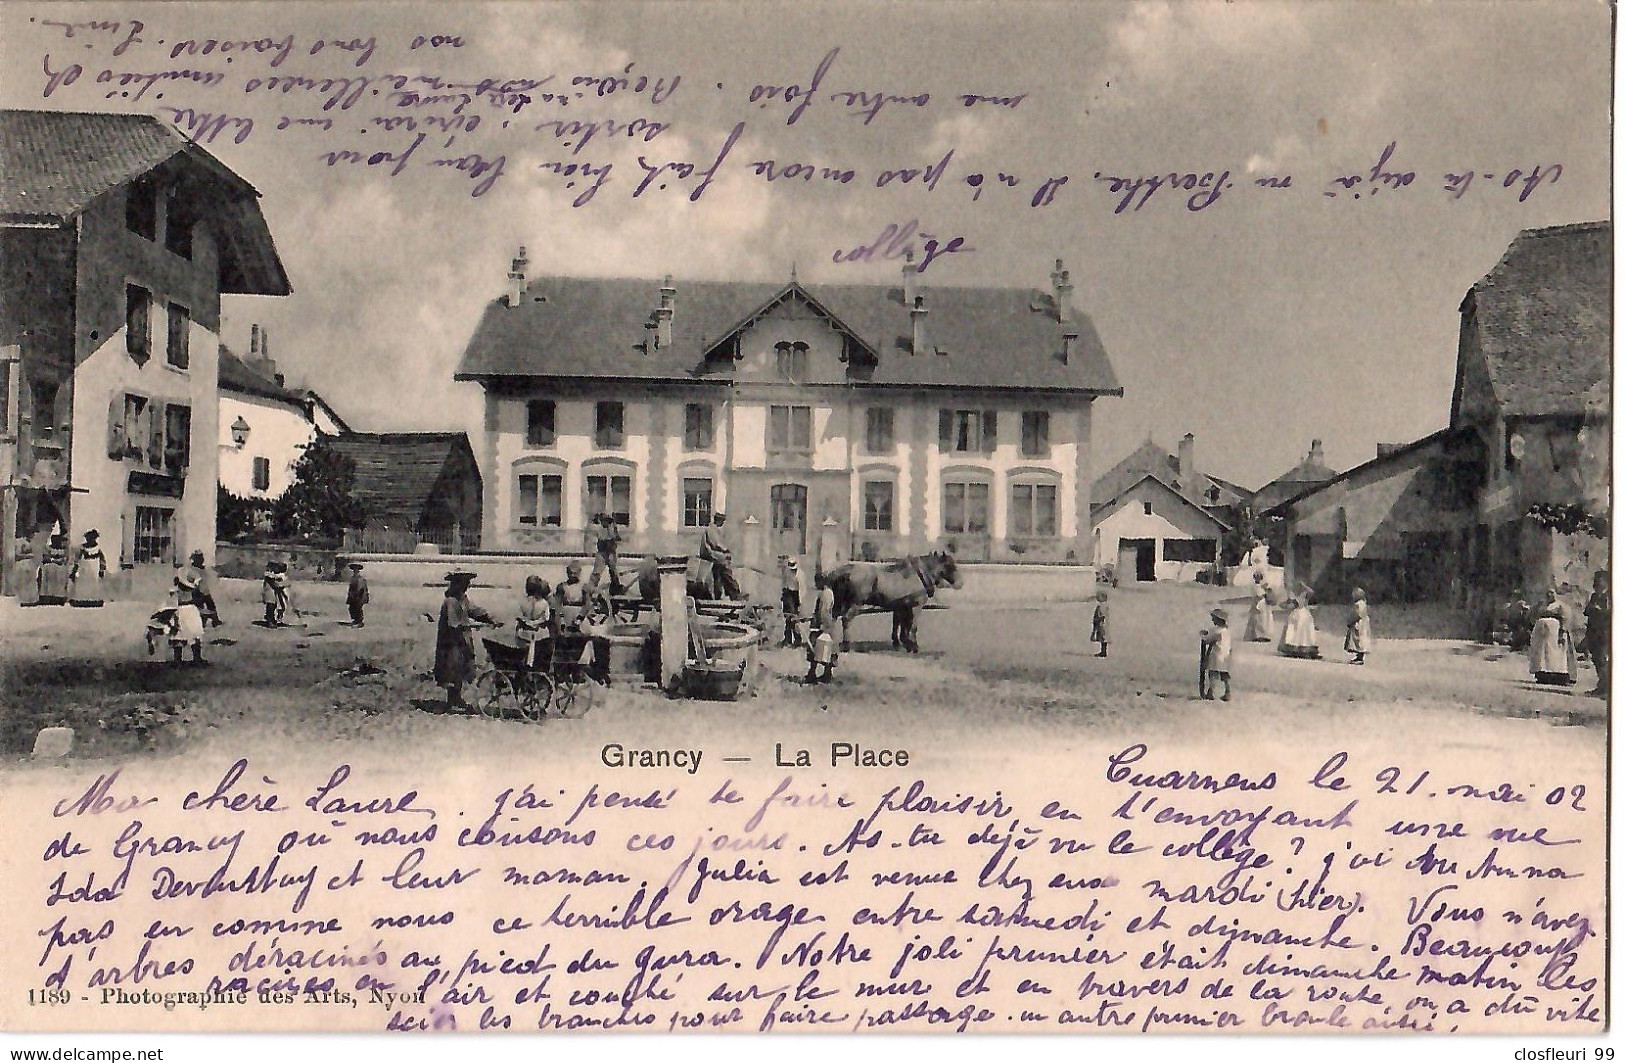 Grancy — La Place
Cuarnens le 21. mai 02
Ma chère Laure, j'ai pensé te faire plaisir, en t'envoyant une vue
de Grancy où nous cousons ces jours. As-tu déjà vu le collège ? j'ai vu Anna
Ida et leur maman. Julia est venue chez eux mardi (hier). Vous n'avez
pas eu comme nous ce terrible orage entre samedi et dimanche. Beaucoup
d'arbres déracinés au pied du Jura. Notre joli prunier était dimanche matin les
racines en l'air et couché sur le mur et en travers de la route, on a dû vite
scier les branches pour faire passage. un autre prunier branle aussi.
1189 - Photographie des Arts, Nyon
collège
As-tu déjà vu Berthe. Il n'a pas encore fait bien beau pour
sortir. écrirai une lettre
une autre fois. Reçois nos meilleures amitiés et
nos bons baisers.
closfleuri 99